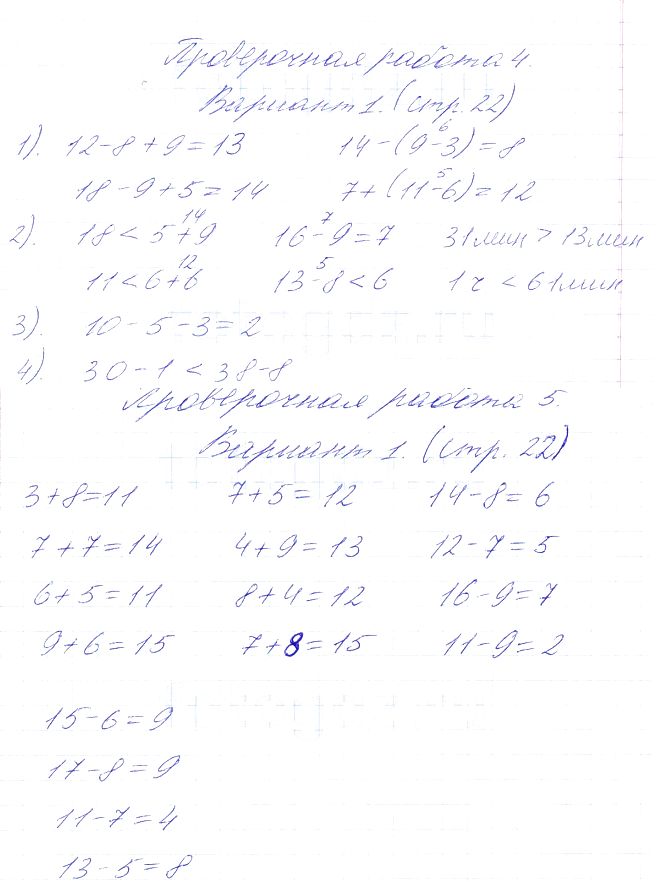 Проверочная работа 4.
Вариант 1. (стр. 22)
1). 12-8+9=13 14-(9-3)=8
6
18-9+5=14 7+(11-6)=12
5
2). 18<5+9 16-9=7 31мин>13мин
14 7
11<6+6 13-8<6 1ч<61мин
12 5
3). 10-5-3=2
4). 30-1<38-8
Проверочная работа 5.
Вариант 1. (стр. 22)
3+8=11 7+5=12 14-8=6
7+7=14 4+9=13 12-7=5
6+5=11 8+4=12 16-9=7
9+6=15 7+8=15 11-9=2
15-6=9
17-8=9
11-7=4
13-5=8